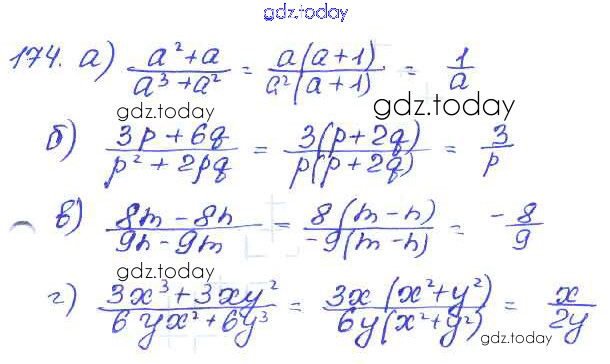 gdz.today
174. а) (a² + a)/(a³ + a²) = a(a + 1)/a²(a + 1) = 1/a
gdz.today gdz.today
б) (3p + 6q)/(p² + 2pq) = 3(p + 2q)/p(p + 2q) = 3/p
в) (8m - 8n)/(9n - 9m) = 8(m - n)/-9(m - n) = -8/9
gdz.today
г) (3x³ + 3xy²)/(6yx² + 6y³) = 3x(x² + y²)/6y(x² + y²) = x/2y
gdz.today